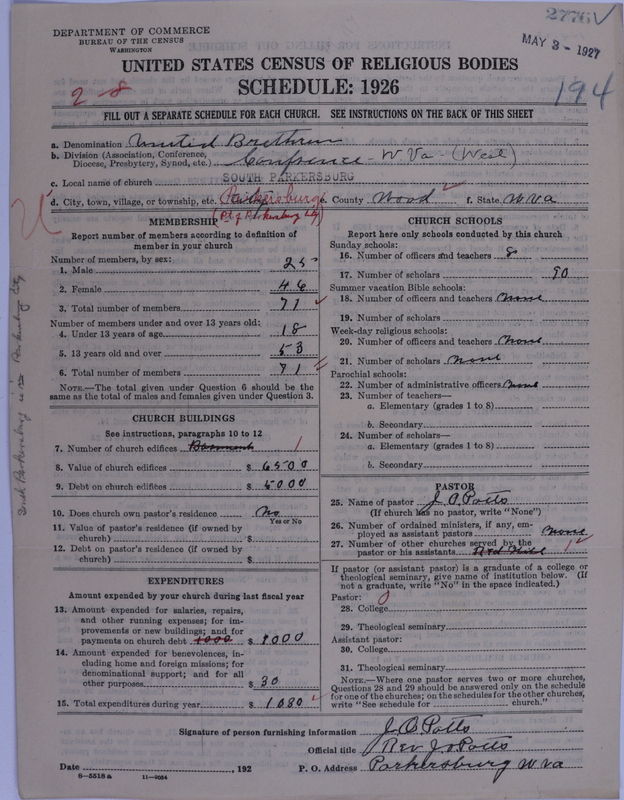 2776 V
DEPARTMENT OF COMMERCE
BUREAU OF THE CENSUS
WASHINGTON
MAY 3 - 1927
UNITED STATES CENSUS OF RELIGIOUS BODIES
SCHEDULE: 1926
2-8
194
FILL OUT A SEPARATE SCHEDULE FOR EACH CHURCH. SEE INSTRUCTIONS ON THE BACK OF THIS SHEET
a. Denomination United Brethren
b. Division (Association, Conference, Diocese, Presbytery, Synod, etc.) Confrence - W Va - (West)
c. Local name of church SOUTH PARKERSBURG
d. City, town, village, or township, etc. Parkersburg e. County Wood f. State W Va
(Pt of Parkersburg City)
MEMBERSHIP
Report number of members according to definition of member in your church
Number of members, by sex:
1. Male 25
2. Female 46
3. Total number of members 71
Number of members under and over 13 years old:
4. Under 13 years of age 18
5. 13 years old and over 53
6. Total number of members 71
NOTE.—The total given under Question 6 should be the same as the total of males and females given under Question 3.
CHURCH BUILDINGS
See instructions, paragraphs 10 to 12
7. Number of church edifices Basment 1
8. Value of church edifices $ 6500
9. Debt on church edifices $ 5000
10. Does church own pastor's residence No
Yes or No
11. Value of pastor's residence (if owned by church) $
12. Debt on pastor's residence (if owned by church) $
EXPENDITURES
Amount expended by your church during last fiscal year
13. Amount expended for salaries, repairs, and other running expenses; for improvements or new buildings; and for payments on church debt 1000 $ 1000
14. Amount expended for benevolences, including home and foreign missions; for denominational support; and for all other purposes $ 30
15. Total expenditures during year $ 1030
CHURCH SCHOOLS
Report here only schools conducted by this church
Sunday schools:
16. Number of officers and teachers 8
17. Number of scholars 90
Summer vacation Bible schools:
18. Number of officers and teachers None
19. Number of scholars
Week-day religious schools:
20. Number of officers and teachers None
21. Number of scholars None
Parochial schools:
22. Number of administrative officers None
23. Number of teachers—
a. Elementary (grades 1 to 8)
b. Secondary
24. Number of scholars—
a. Elementary (grades 1 to 8)
b. Secondary
PASTOR
25. Name of pastor J. O. Potts
(If church has no pastor, write "None")
26. Number of ordained ministers, if any, employed as assistant pastors None
27. Number of other churches served by the pastor or his assistants Red Hill 1
If pastor (or assistant pastor) is a graduate of a college or theological seminary, give name of institution below. (If not a graduate, write "No" in the space indicated.)
Pastor: 0
28. College
29. Theological seminary
Assistant pastor:
30. College
31. Theological seminary
NOTE.—Where one pastor serves two or more churches, Questions 28 and 29 should be answered only on the schedule for one of the churches; on the schedules for the other churches, write "See schedule for church."
Signature of person furnishing information J. O. Potts
Official title Rev J O Potts
Date , 192 P. O. Address Parkersburg W Va
8—5518 a 11—9034